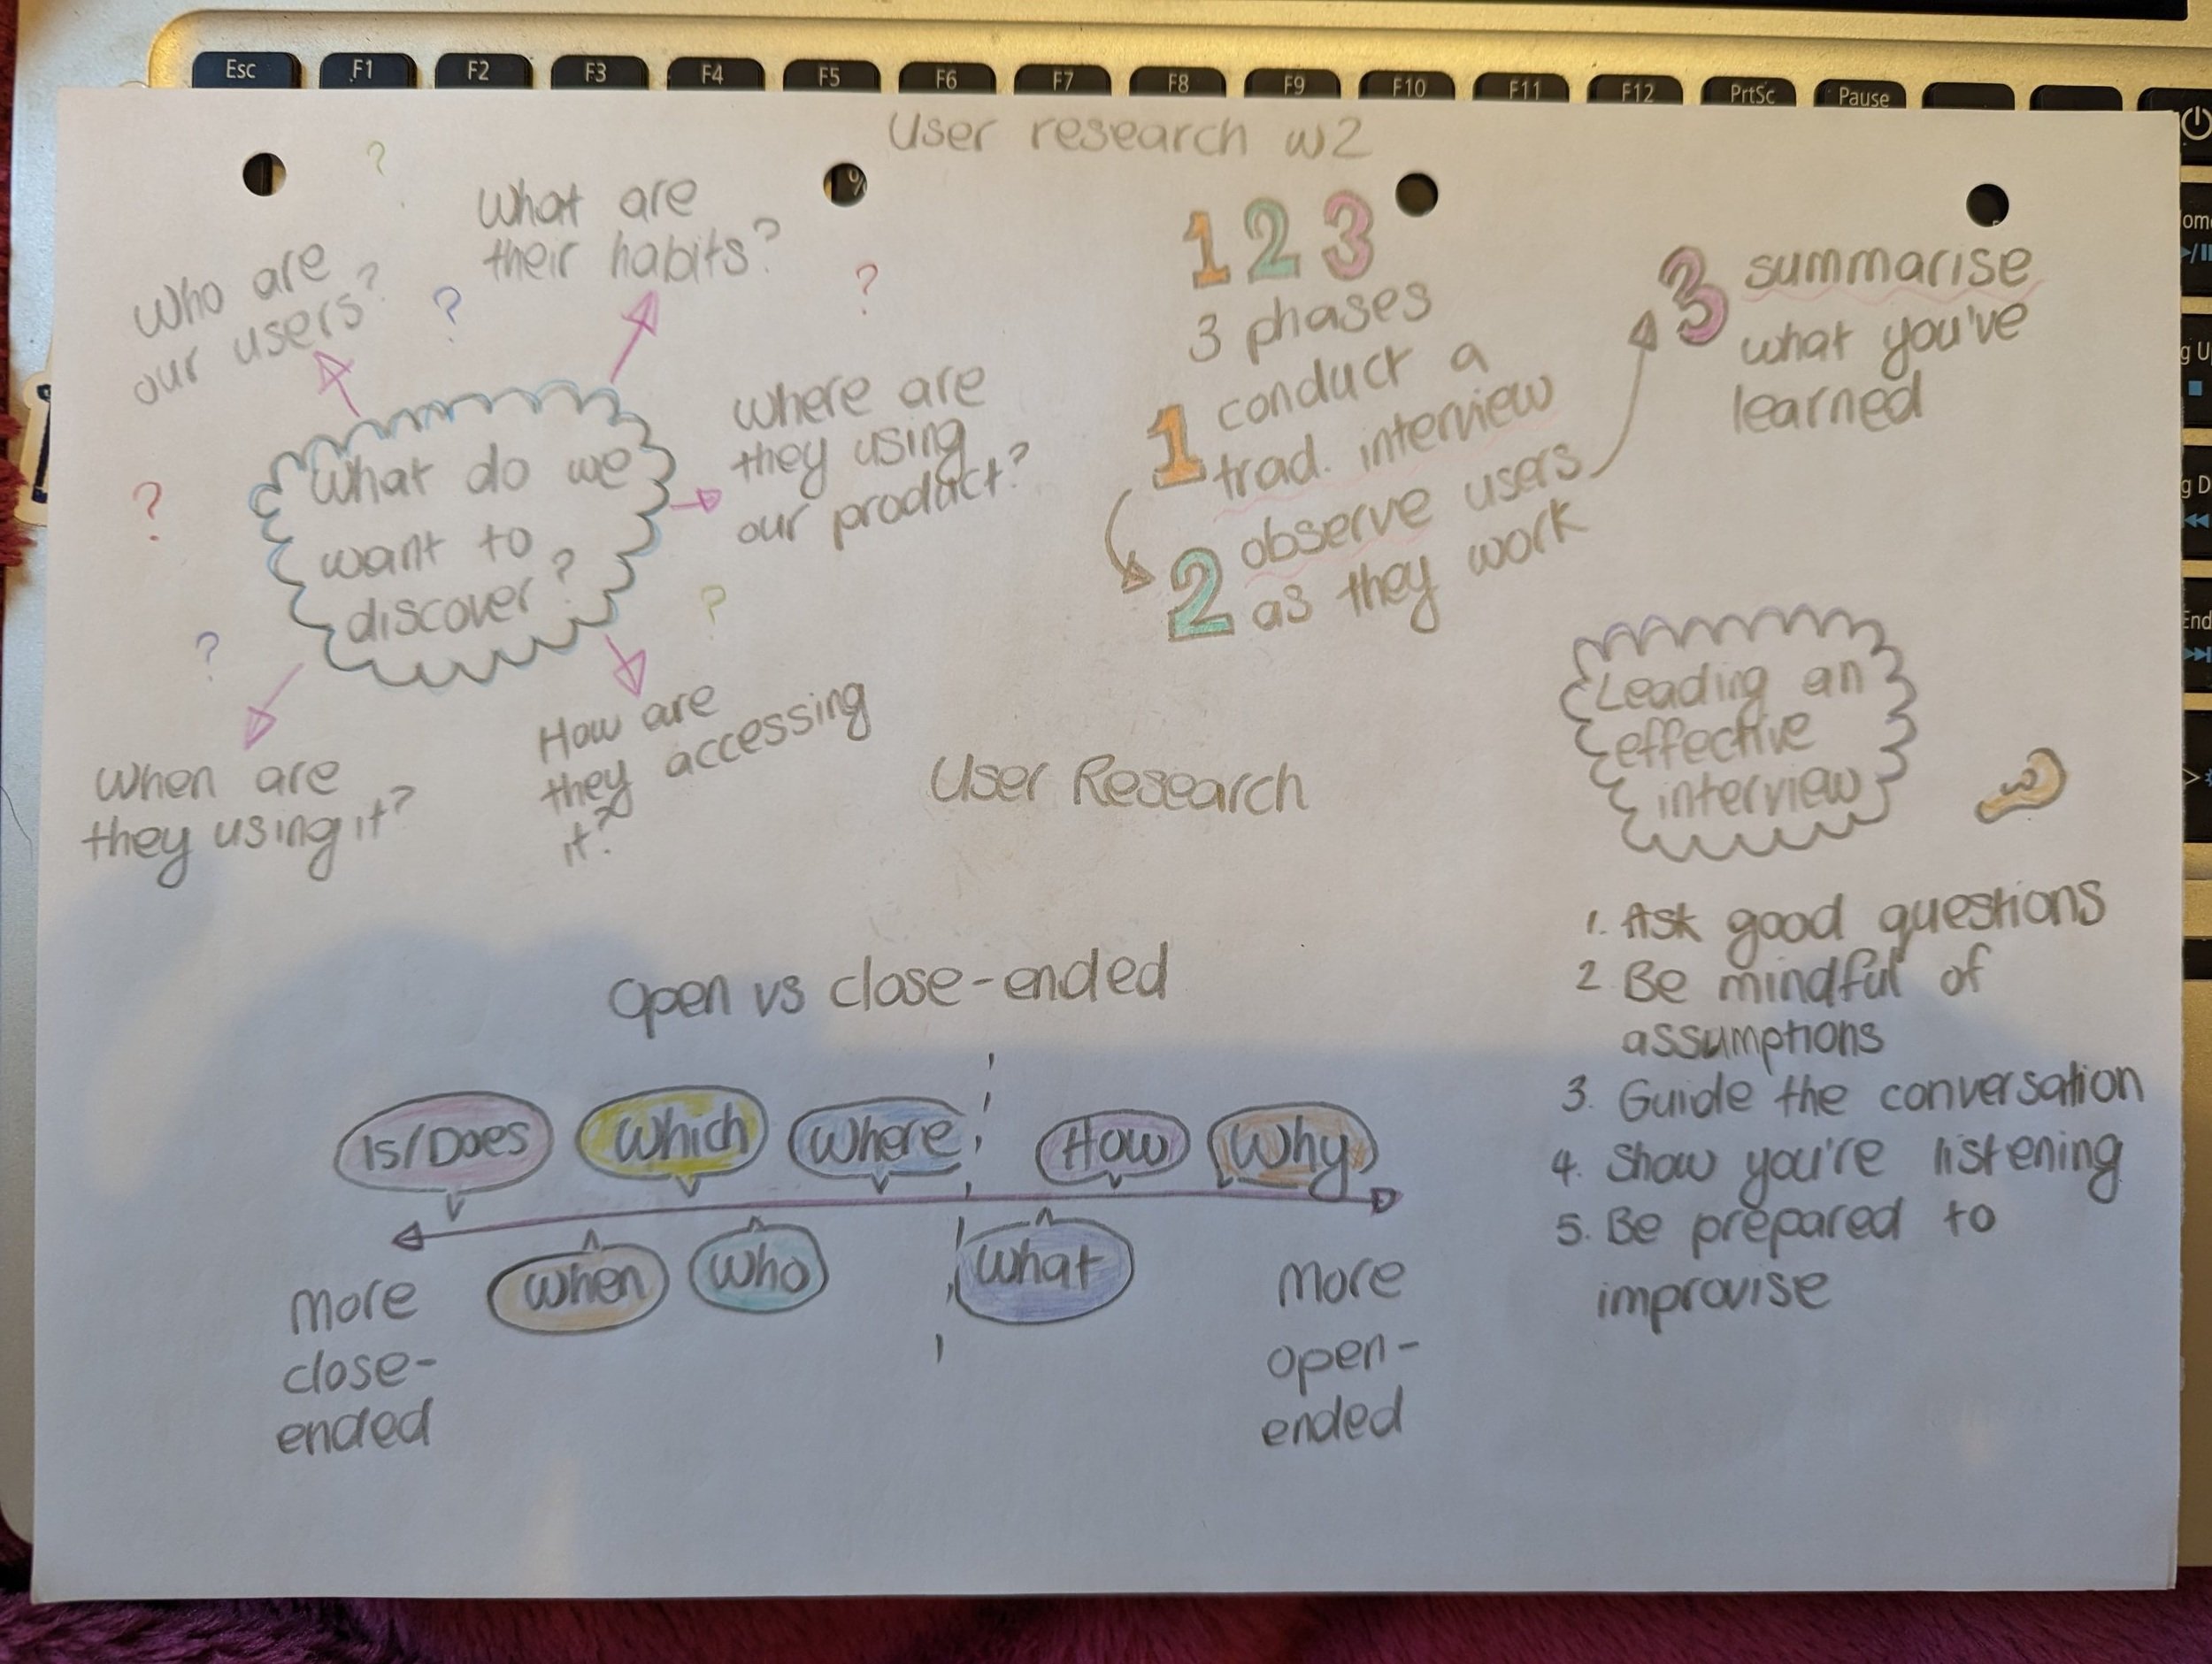 Esc F1 F2 F3 F4 F5 F6 F7 F8 F9 F10 F11 F12 PrtSc Pause
User research w2
%
Who are
our users?
?
What are
their habits?
?
?
Where are
they using
our product?
What do we
want to
discover?
?
?
?
When are
they using it?
How are
they accessing
it?
1 2 3
3 phases
1 conduct a
trad. interview
2 observe users
as they work
3 summarise
what you've
learned
User Research
Leading an
effective
interview
1. Ask good questions
2. Be mindful of
assumptions
3. Guide the conversation
4. Show you're listening
5. Be prepared to
improvise
Open vs close-ended
Is/Does Which Where How Why
When Who What
More
close-
ended
More
open-
ended
End